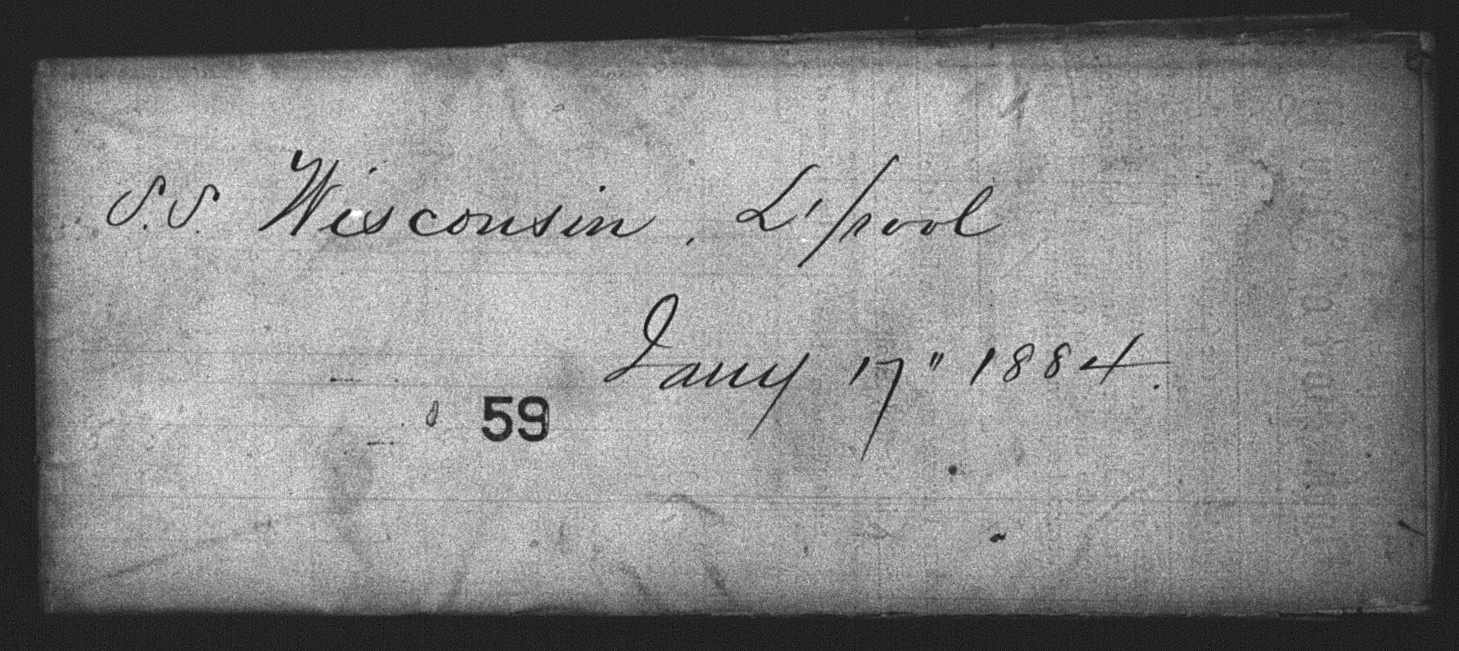 S.S. Wisconsin, L'pool
Jany 17" 1884.
59